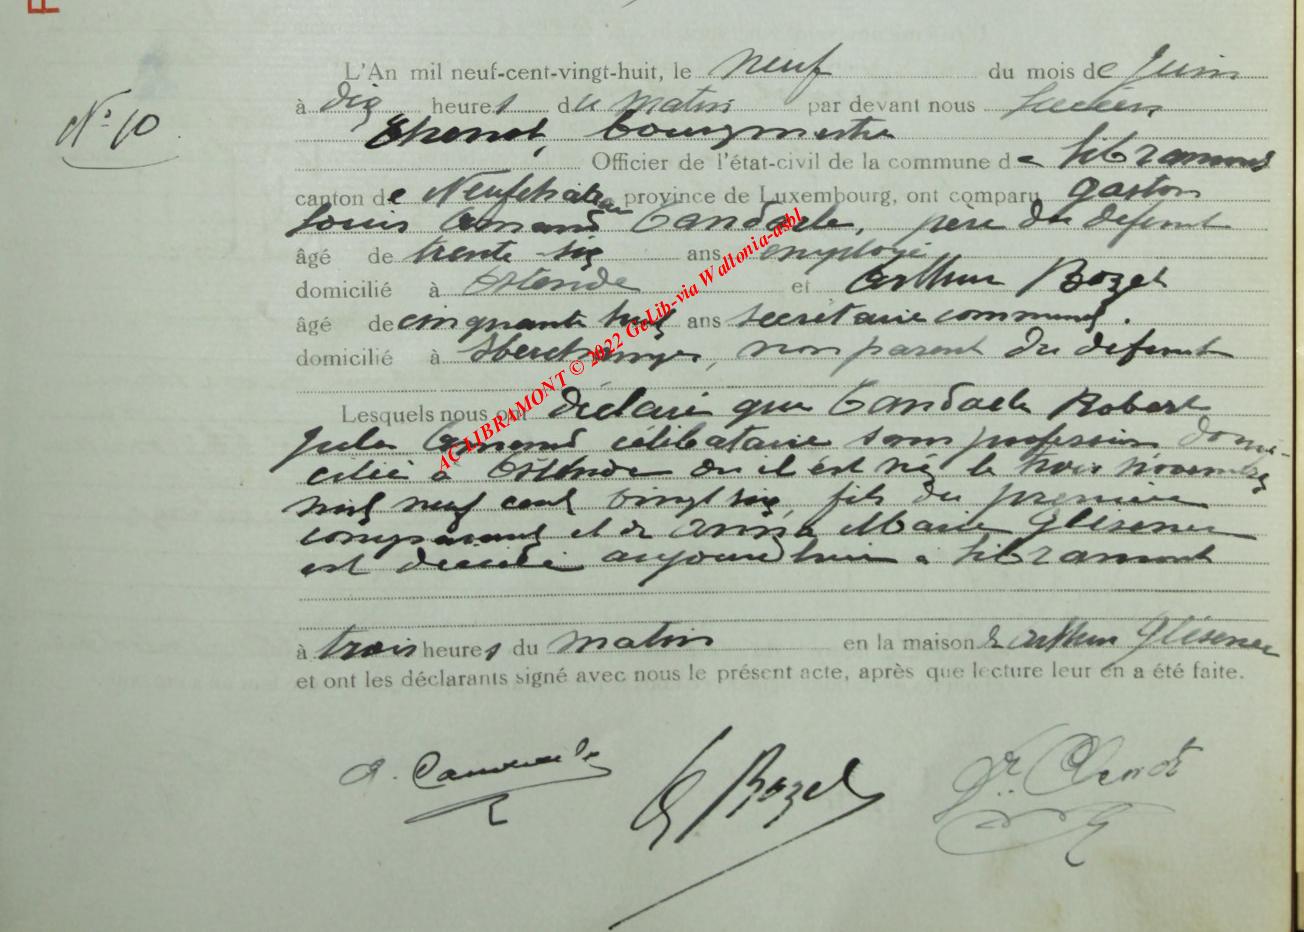 L'An mil neuf-cent-vingt-huit, le neuf du mois de Juin
N° 10
à dix heures du matin par devant nous Lucien
Thenot, bourgmestre
Officier de l'état-civil de la commune de Libramont
canton de Neufchâteau province de Luxembourg, ont comparu Gaston
Louis Armand Candaele, père du défunt
âgé de trente-six ans employé
domicilié à Ostende et Arthur Bozet
âgé de cinquante huit ans secrétaire communal.
domicilié à non parent du défunt
Lesquels nous ont déclaré que Candaele Robert
Jules Armand célibataire sans profession domi-
cilié à Ostende où il est né le trois novembre
mil neuf cent vingt six, fils du premier
comparant et de Anna Marie Glisener
est décédé aujourd'hui à Libramont
à trois heures du matin en la maison de Arthur Glisener
et ont les déclarants signé avec nous le présent acte, après que lecture leur en a été faite.
Bozet
AC LIBRAMONT © 2022 GeLib-via Wallonia-asbl